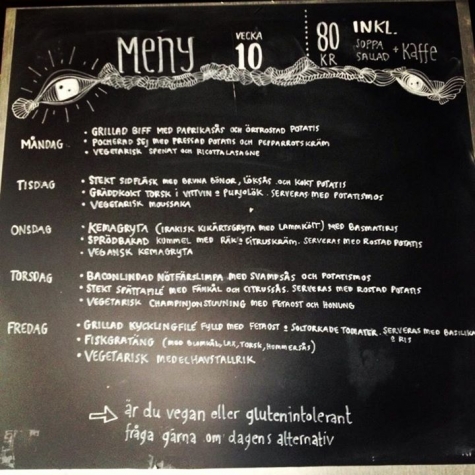 Meny VECKA 10 80 KR INKL. SOPPA SALLAD + KAFFE
MÅNDAG
• GRILLAD BIFF MED PAPRIKASÅS OCH ÖRTROSTAD POTATIS
• POCHERAD SEJ MED PRESSAD POTATIS OCH PEPPARROTSKRÄM
• VEGETARISK SPENAT OCH RICOTTALASAGNE
TISDAG
• STEKT SIDFLÄSK MED BRUNA BÖNOR, LÖKSÅS OCH KOKT POTATIS
• GRÄDDKOKT TORSK I VITTVIN & PURJOLÖK. SERVERAS MED POTATISMOS
• VEGETARISK MOUSSAKA
ONSDAG
• KEMAGRYTA (IRAKISK KIKÄRTSGRYTA MED LAMMKÖTT) MED BASMATIRIS
• SPRÖDBAKAD KUMMEL MED RÄK & CITRUSKRÄM. SERVERAS MED ROSTAD POTATIS
• VEGANSK KEMAGRYTA
TORSDAG
• BACONLINDAD NÖTFÄRSLIMPA MED SVAMPSÅS OCH POTATISMOS
• STEKT SPÄTTAFILÉ MED FÄNKÅL OCH CITRUSSÅS. SERVERAS MED ROSTAD POTATIS
• VEGETARISK CHAMPINJONSTUVNING MED FETAOST OCH HONUNG
FREDAG
• GRILLAD KYCKLINGFILÉ FYLLD MED FETAOST & SOLTORKADE TOMATER. SERVERAS MED BASILIKA & RIS
• FISKGRATÄNG (MED BLÅMUSSL, LAX, TORSK, HUMMERSÅS)
• VEGETARISK MEDELHAVSTALLRIK
⇨ är du vegan eller glutenintolerant
fråga gärna om dagens alternativ